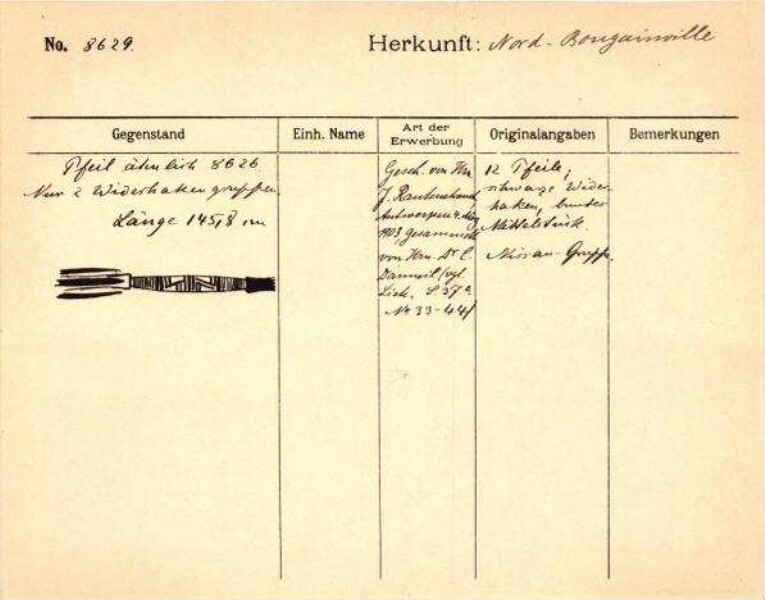 No. 8629.
Herkunft: Nord-Bougainville
Gegenstand
Einh. Name
Art der Erwerbung
Originalangaben
Bemerkungen
Pfeil ähnlich 8626.
Nur 2 Widerhakengruppen.
Länge 145,8 cm
Gesch. von Hrn
J. Rautenstrauch,
Antwerpen 4. Mai
1903, gesammelt
von Hrn. Dr. C.
Danneil (vgl.
Liste, S 37a
Nr 33-44)
12 Pfeile,
schwarze Wider-
haken, bunter
Mittelstück.
Nissan-Gruppe.